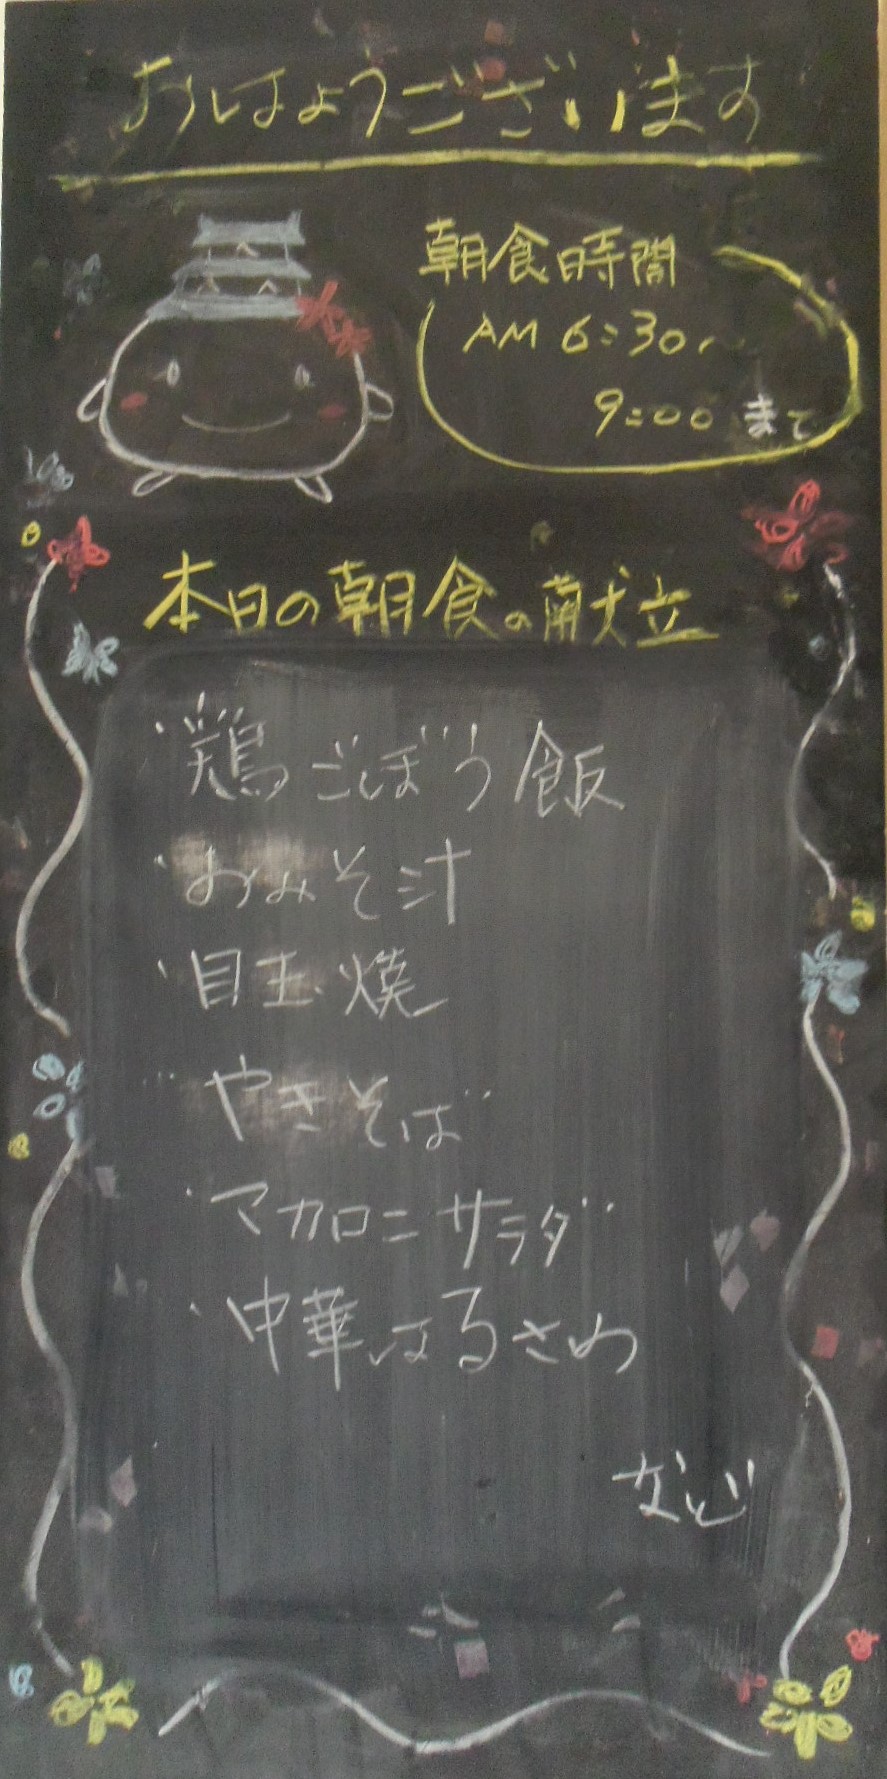 おはようございます
朝食時間
AM 6:30〜
9:00まで
本日の朝食の献立
・鶏ごぼう飯
・おみそ汁
・目玉焼
・やきそば
・マカロニサラダ
・中華はるさめ
など